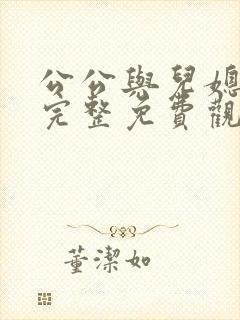 公公與兒媳
完整免費觀
董潔如